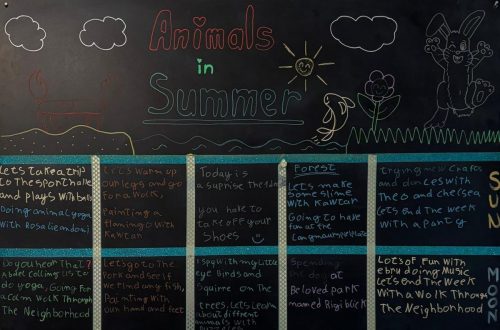 Animals
in
Summer
Lets take a trip
to the sporthalle
and plays with balls
Doing animal yoga
with Rosalie and oni
Lets warm up
our legs and go
for a walk,
Painting a
flamingo with
Kawtar
Today is
a surprise the
you have to
take off your
shoes
Forest
Lets make
some slime
with Kawtar
Going to have
fun at the
Trying new crafts
and dances with
Theo and chelsea
Lets end the week
with a party
SUN
Do you hear that?
Abdel calling us to
do yoga, Going for
a calm walk through
The Neighborhood
Lets go to the
Park and see if
we find any fish,
Painting with
our hand and feet
I spy with my little
eye Birds and
Squirre on the
trees, Lets Learn
about diffrent
animals with
Spending
day at
Beloved park
named Rigiblick
Lots of Fun with
ebru doing Music
Lets end The Week
With a Walk Through
The Neighborhood
MOON